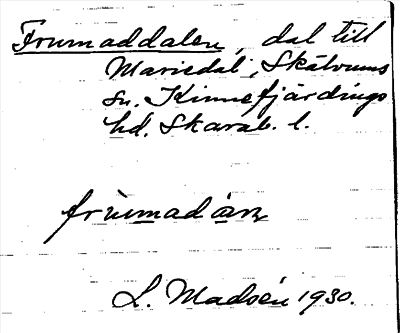 Frumaddalen, dal till
Mariedal, Skälvums
sn. Kinnefjärdings
hd. Skarab. l.
L. Madsén 1930.